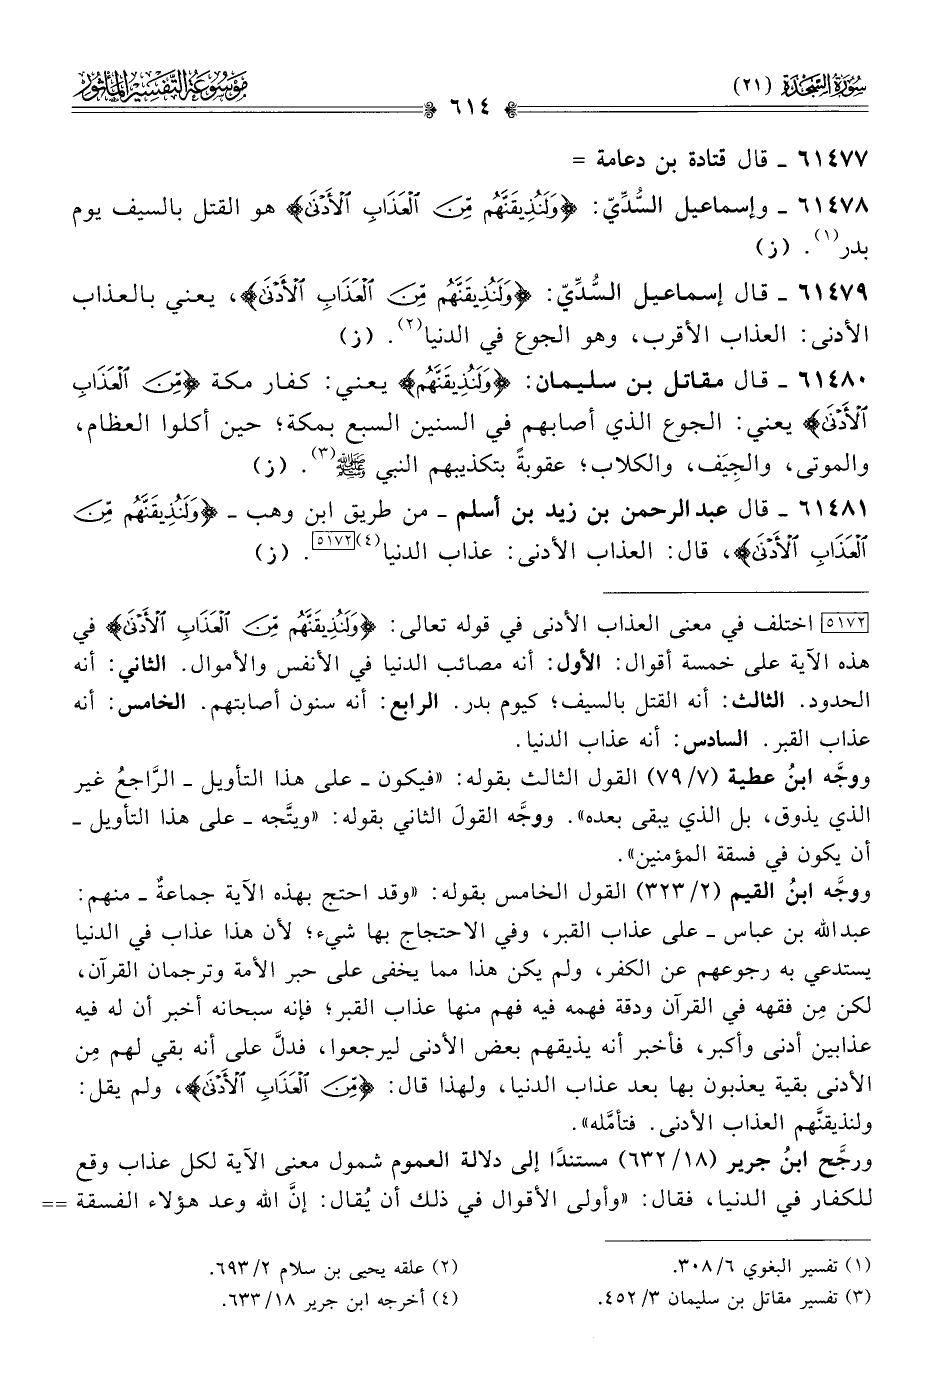 سورة السجدة (٢١)
موسوعة التفسير المأثور
٦١٤
٦١٤٧٧ ـ قال قتادة بن دعامة =
٦١٤٧٨ ـ وإسماعيل السُّدِّيّ: ﴿وَلَنُذِيقَنَّهُم مِّنَ ٱلْعَذَابِ ٱلْأَدْنَىٰ﴾ هو القتل بالسيف يوم
بدر(١). (ز)
٦١٤٧٩ ـ قال إسماعيل السُّدِّيّ: ﴿وَلَنُذِيقَنَّهُم مِّنَ ٱلْعَذَابِ ٱلْأَدْنَىٰ﴾، يعني بالعذاب
الأدنى: العذاب الأقرب، وهو الجوع في الدنيا(٢). (ز)
٦١٤٨٠ ـ قال مقاتل بن سليمان: ﴿وَلَنُذِيقَنَّهُم﴾ يعني: كفار مكة ﴿مِّنَ ٱلْعَذَابِ
ٱلْأَدْنَىٰ﴾ يعني: الجوع الذي أصابهم في السنين السبع بمكة؛ حين أكلوا العظام،
والموتى، والجِيَف، والكلاب؛ عقوبةً بتكذيبهم النبي ﷺ(٣). (ز)
٦١٤٨١ ـ قال عبد الرحمن بن زيد بن أسلم ـ من طريق ابن وهب ـ ﴿وَلَنُذِيقَنَّهُم مِّنَ
ٱلْعَذَابِ ٱلْأَدْنَىٰ﴾، قال: العذاب الأدنى: عذاب الدنيا(٤)[٥١٧٢]. (ز)
[٥١٧٢] اختلف في معنى العذاب الأدنى في قوله تعالى: ﴿وَلَنُذِيقَنَّهُم مِّنَ ٱلْعَذَابِ ٱلْأَدْنَىٰ﴾ في
هذه الآية على خمسة أقوال: الأول: أنه مصائب الدنيا في الأنفس والأموال. الثاني: أنه
الحدود. الثالث: أنه القتل بالسيف؛ كيوم بدر. الرابع: أنه سنون أصابتهم. الخامس: أنه
عذاب القبر. السادس: أنه عذاب الدنيا.
ووجَّه ابنُ عطية (٧/ ٧٩) القول الثالث بقوله: «فيكون ـ على هذا التأويل ـ الرَّاجعُ غير
الذي يذوق، بل الذي يبقى بعده». ووجَّه القولَ الثاني بقوله: «ويتَّجه ـ على هذا التأويل ـ
أن يكون في فسقة المؤمنين».
ووجَّه ابنُ القيم (٢/ ٣٢٣) القول الخامس بقوله: «وقد احتج بهذه الآية جماعةٌ ـ منهم:
عبد الله بن عباس ـ على عذاب القبر، وفي الاحتجاج بها شيء؛ لأن هذا عذاب في الدنيا
يستدعي به رجوعهم عن الكفر، ولم يكن هذا مما يخفى على حبر الأمة وترجمان القرآن،
لكن مِن فقهه في القرآن ودقة فهمه فيه فهم منها عذاب القبر؛ فإنه سبحانه أخبر أن له فيه
عذابين أدنى وأكبر، فأخبر أنه يذيقهم بعض الأدنى ليرجعوا، فدلَّ على أنه بقي لهم مِن
الأدنى بقية يعذبون بها بعد عذاب الدنيا، ولهذا قال: ﴿مِّنَ ٱلْعَذَابِ ٱلْأَدْنَىٰ﴾، ولم يقل:
ولنذيقنَّهم العذاب الأدنى. فتأمَّله».
ورجَّح ابنُ جرير (١٨/ ٦٣٢) مستندًا إلى دلالة العموم شمول معنى الآية لكل عذاب وقع
للكفار في الدنيا، فقال: «وأولى الأقوال في ذلك أن يُقال: إنَّ الله وعد هؤلاء الفسقة ==
(١) تفسير البغوي ٦/ ٣٠٨.
(٢) علقه يحيى بن سلام ٢/ ٦٩٣.
(٣) تفسير مقاتل بن سليمان ٣/ ٤٥٢.
(٤) أخرجه ابن جرير ١٨/ ٦٣٣.